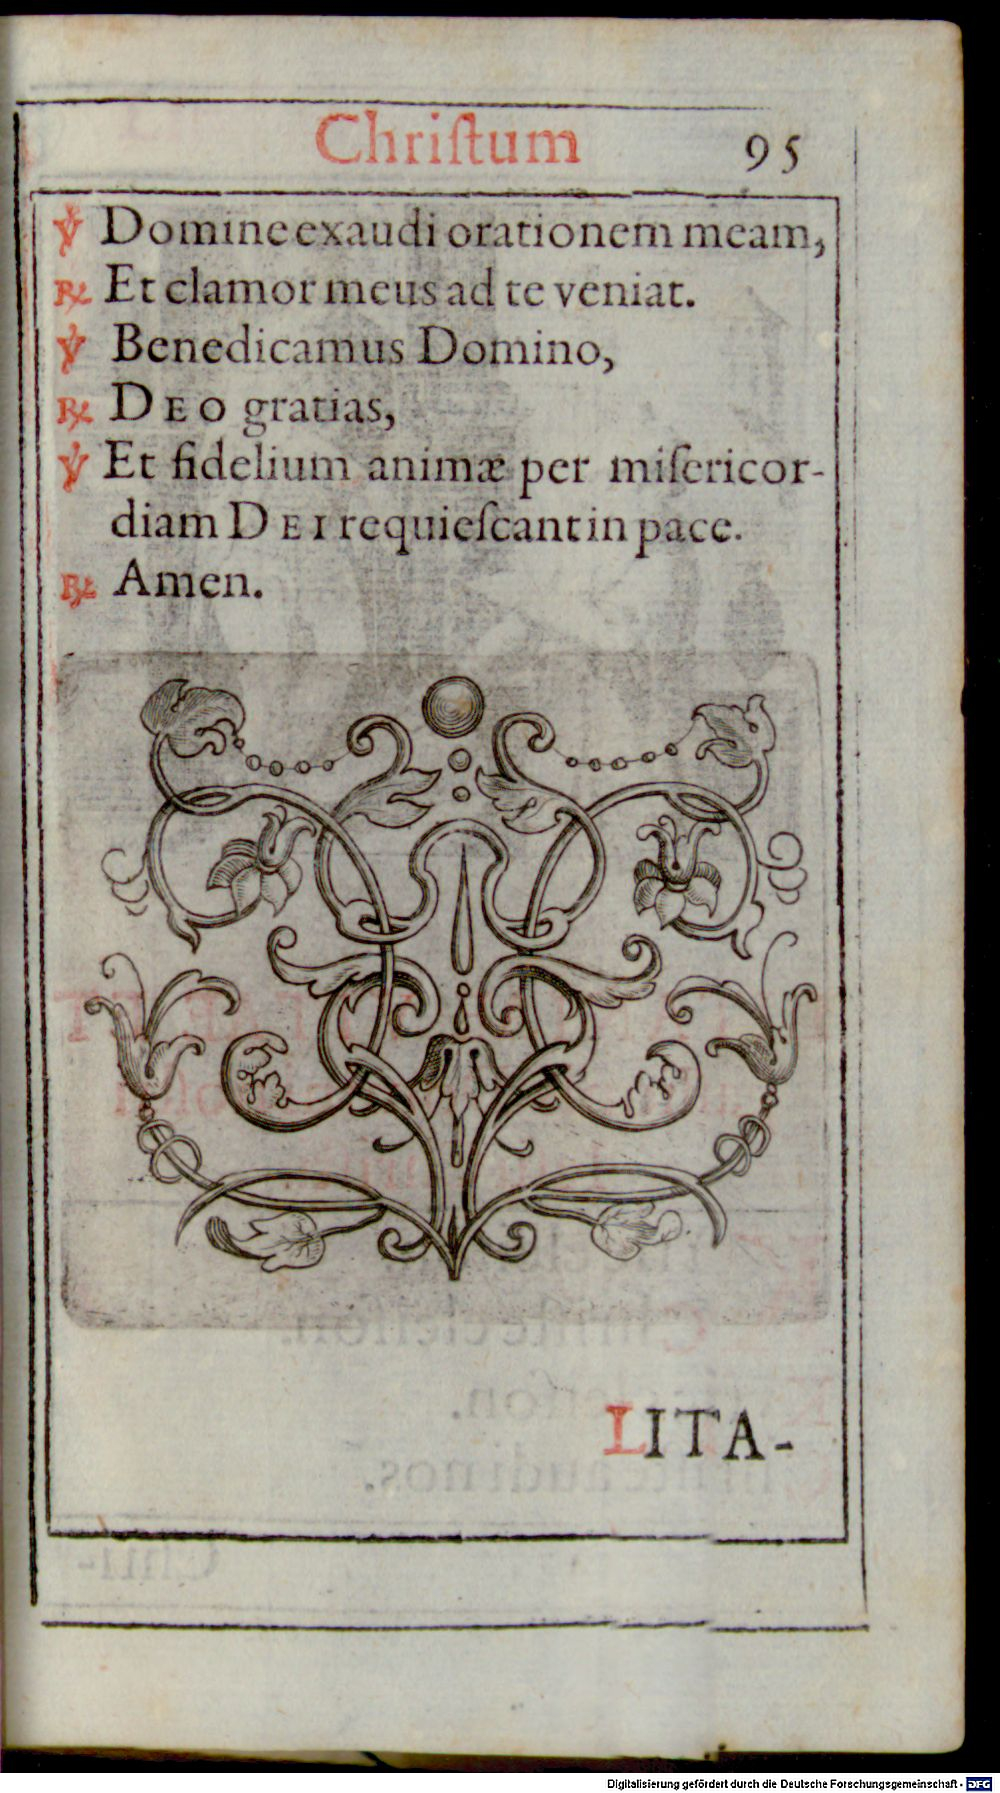 Chriſtum 95
℣ Domine exaudi orationem meam,
℟ Et clamor meus ad te veniat.
℣ Benedicamus Domino,
℟ DEO gratias,
℣ Et fidelium animæ per miſericor-
diam DEI requieſcant in pace.
℟ Amen.
LITA-
Digitalisierung gefördert durch die Deutsche Forschungsgemeinschaft - DFG